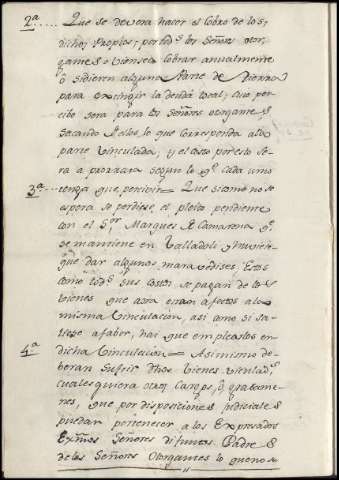 2ª.... Que se devera hacer el cobro de los
dichos Propios; por tods. los Señores otor
gantes o viensea cobrar anualmente
ó sidieren alguna Parte de Tierra
para extinguir la deuda total, cuio per
cibo sera para los Señores otorgantes
sacando de los, lo que corresponda ala
parte vinculada, y el costo por esto se
ra a prorrata segun lo qe. cada uno
3ª... tenga que percivir= Que si como no se
espera se perdiese, el pleito pendiente
con el Sor. Marques de Camarena qe.
se mantiene en Valladolid y huvien
que dar algunos maravedises, estos
como tods. sus costos se pagan de los
vienes que aora eran afectos a la
misma vinculacion, asi como si sa
liese afabor, hai que emplearlos en
4ª dicha vinculacion= Asimismo de
beran sufrir dhos vienes vinculads.
cualesquiera otros Cargos, ó gravame
nes, que por disposiciones judiciales
puedan pertenecer a los Expresados
Exmos Señores difuntos Padres
de los Señores Otorgantes lo que no se